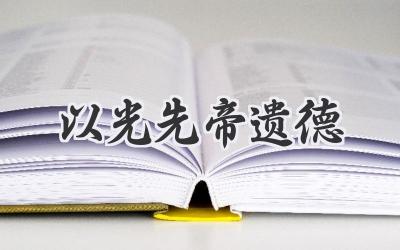 以光先帝遗德